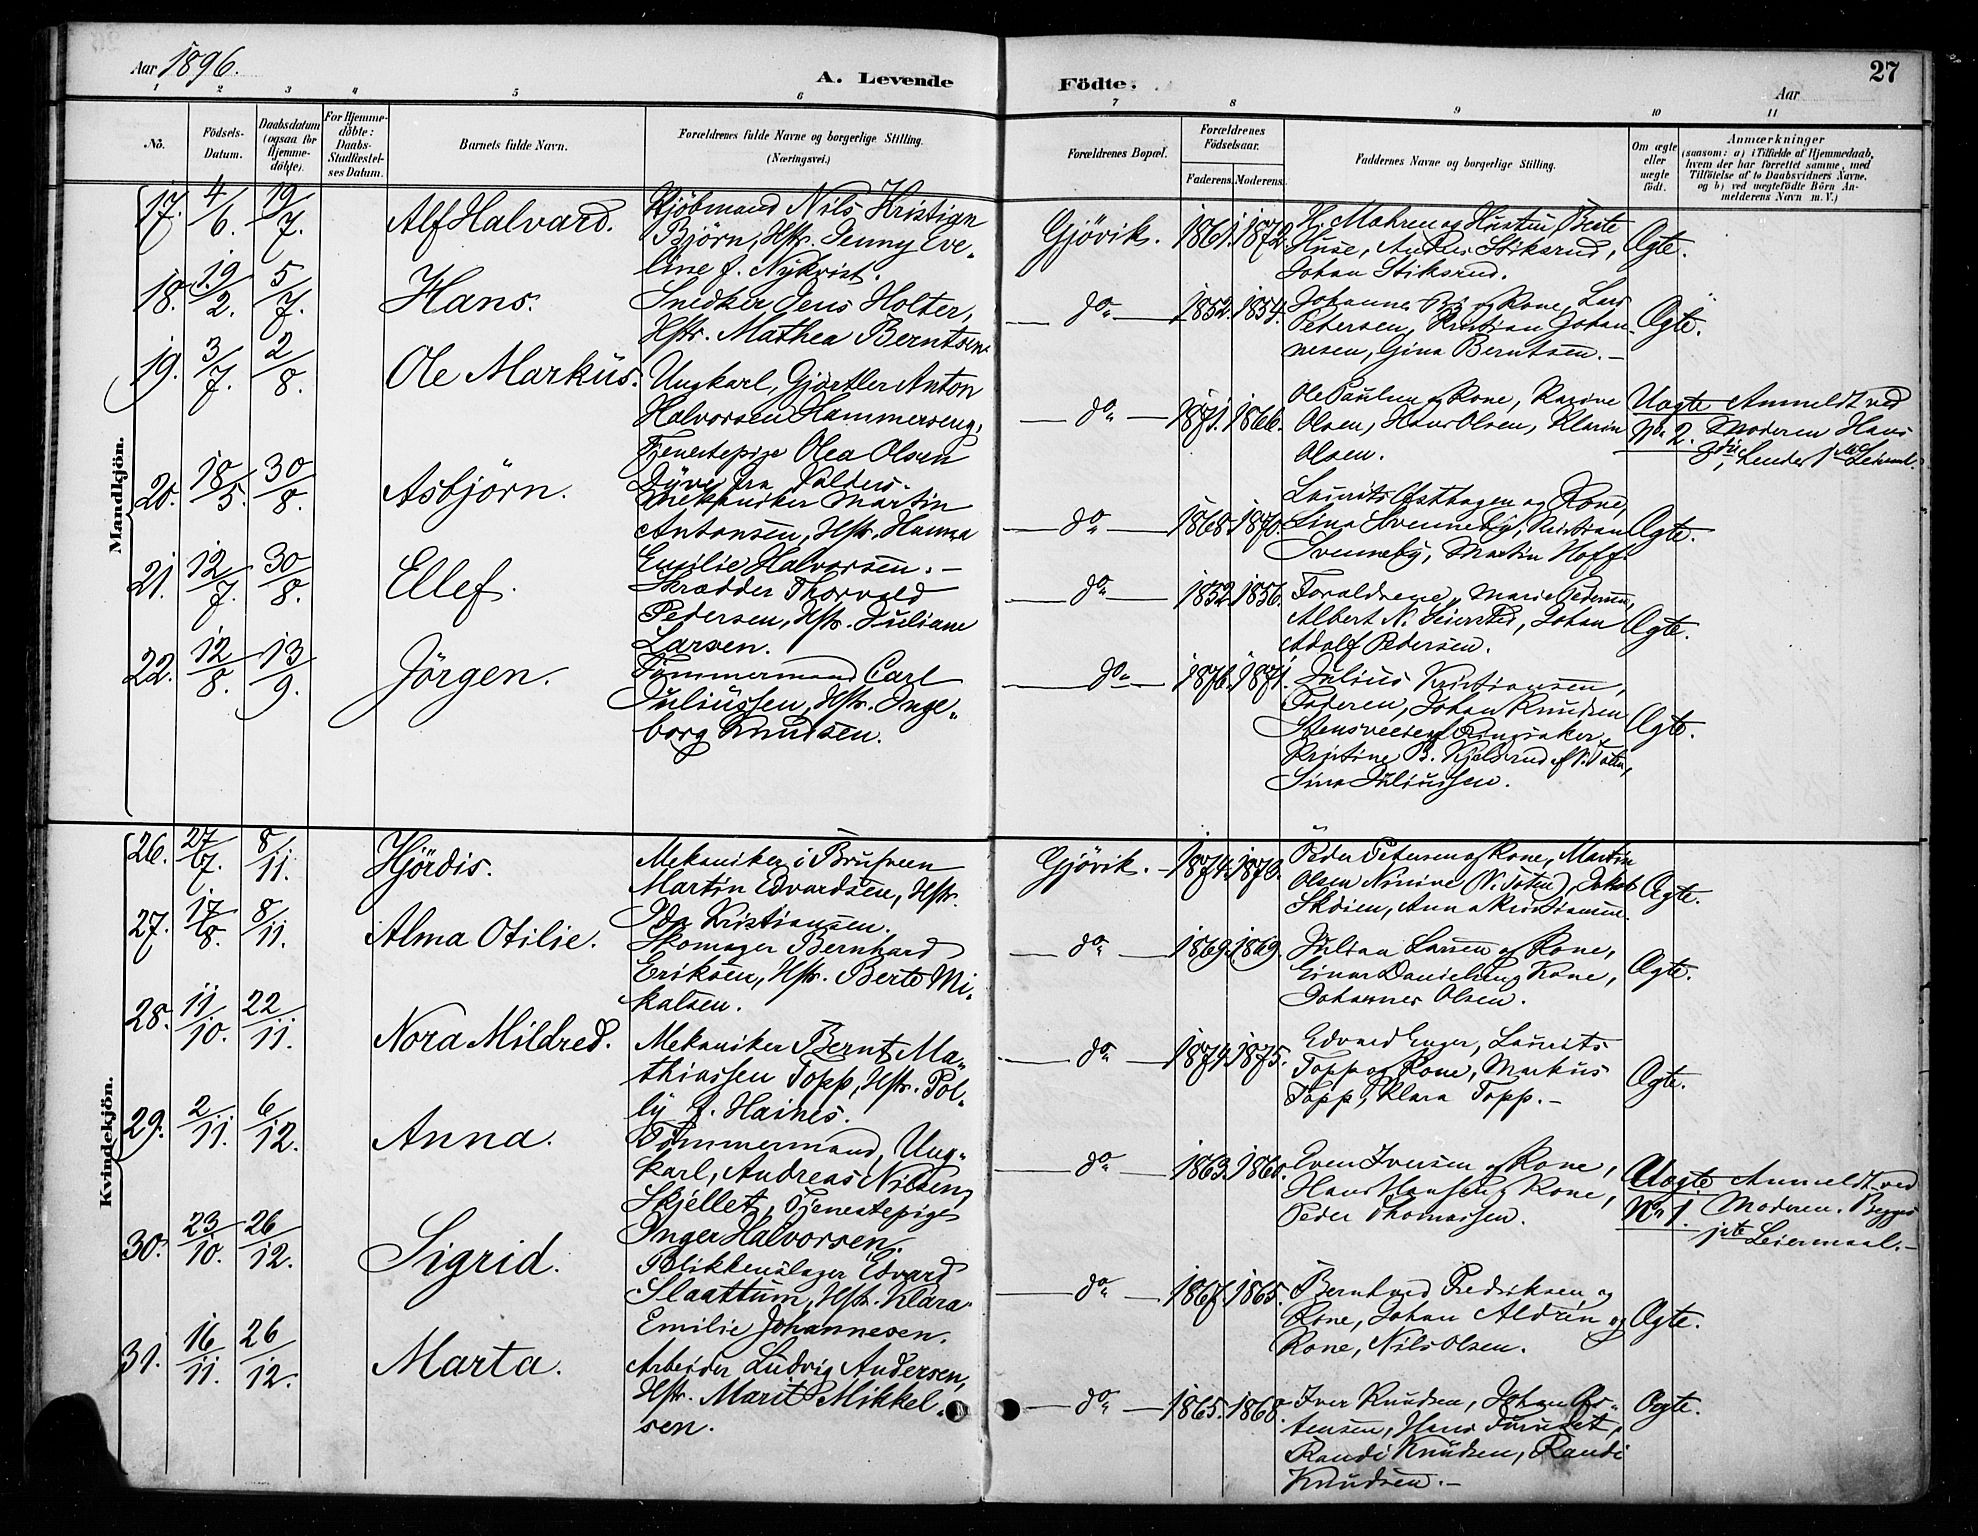 Aar 1896.
A. Levende
Födte.
Aar
27
1
2
3
4
5
6
7
8
9
10
11
No.
Födsels-
Datum.
Daabsdatum
(ogsaa for
Hjemme-
döbte).
For Hjemme-
döbte:
Daabs-
Stadfæstel-
ses Datum.
Barnets fulde Navn.
Forældrenes fulde Navne og borgerlige Stilling.
(Næringsvei.)
Forældrenes Bopæl.
Forældrenes
Födselsaar.
Faderens.
Moderens.
Faddernes Navne og borgerlige Stilling.
Om ægte
eller
uægte
födt.
Anmærkninger
(saasom: a) i Tilfælde af Hjemmedaab,
hvem der har forrettet samme, med
Tilföielse af to Daabsvidners Navne,
og b) ved uægtefödte Börn An-
melderens Navn m. V.)
Mandkjön.
17. 4/6. 19/7. Alf Halvard.
Kjöbmand Nils Kristian
Björn, Hstr. Jenny Eve-
line f. Nykvist.
Gjövik. 1861. 1872.
H. Mahren og Hustru, Beate
Huse, Anders Stiksrud,
Johan Stiksrud.
Ægte.
18. 19/2. 5/7. Hans.
Snedker Jens Holter,
Hstr. Mathea Berntsen.
do 1852. 1854.
Johannes og Kone, Lars
Petersen, Kristian Johan-
nesen, Gina Berntsen. —
Ægte.
19. 3/7. 2/8. Ole Markus.
Ungkarl, Gjörtler Anton
Halvorsen Hammerseng,
Tjenestepige Olea Olsen
fra Valders.
do 1871. 1866.
Ole Paulsen og Kone, Karine
Olsen, Hans Olsen, Klarin
Olsen.
Uægte No. 2.
Anmeldt ved
Moderen. Hans
20. 18/5. 30/8. Asbjörn.
Mekaniker Martin
Antonsen, Hstr. Hanna
Emilie Halvorsen. —
do 1868. 1870.
Laurits Østhagen og Kone,
Lina Svenneby, Kristian
Svenneby, Martin Hoff.
Ægte.
21. 12/7. 30/8. Ellef.
Skrædder Thorvald
Pedersen, Hstr. Juliane
Larsen.
do 1852. 1856.
Forældrene, Marie Pedersen,
Albert N. Seierstad, Johan
Adolf Pedersen.
Ægte.
22. 12/8. 13/9. Jörgen.
Tömmermand Carl
Juliussen, Hstr. Inge-
borg Knudsen.
do 1876. 1871.
Julius Kristiansen,
Faderen, Johan Knudsen
Stensveen af Ringsaker,
Kristine B. Kjelsrud af V. Toten,
Sina Juliussen.
Ægte.
Kvindekjön.
26. 27/7. 8/11. Hjördis.
Mekaniker i Brufveen
Martin Edvardsen, Hstr.
Ida Kristiansen.
Gjövik. 1874. 1873.
Peder Petersen og Kone, Martin
Olsen Ninive (V. Toten), Jakob
Sköien, Anna Kristiansen.
Ægte.
27. 17/8. 8/11. Alma Otilie.
Skomager Bernhard
Eriksen, Hstr. Berte Mi-
kalsen.
do 1869. 1869.
Julian Larsen og Kone,
Einar Danielsen og Kone,
Johannes Olsen.
Ægte.
28. 11/10. 22/11. Nora Mildred.
Mekaniker Bernt Ma-
thiassen Topp, Hstr. Pol-
ly f. Haines.
do 1874. 1875.
Edvard Enger, Laurits
Topp og Kone, Markus
Topp, Klara Topp. —
Ægte.
29. 2/11. 6/12. Anna.
Tömmermand, Ung-
karl, Andreas Nilsen
Skjellet, Tjenestepige
Inger Halvorsen.
do 1863. 1860.
Even Iversen og Kone,
Hans Hansen og Kone,
Peder Thomassen.
Uægte No 1.
Anmeldt ved
Moderen. Begges
1ste Leiermaal. —
30. 23/10. 26/12. Sigrid.
Blikkenslager Edvard
Slaattum, Hstr. Klara
Emilie Johannesen.
do 1867. 1865.
Bernhard Fredriksen og
Kone, Johan Aldrin og
Kone, Nils Olsen.
Ægte.
31. 16/11. 26/12. Marta.
Arbeider Ludvig Andersen,
Hstr. Marit Mikkel-
sen.
do 1865. 1868.
Iver Knudsen, Johan
Randi Knudsen, Randi
Knudsen. —
Ægte.